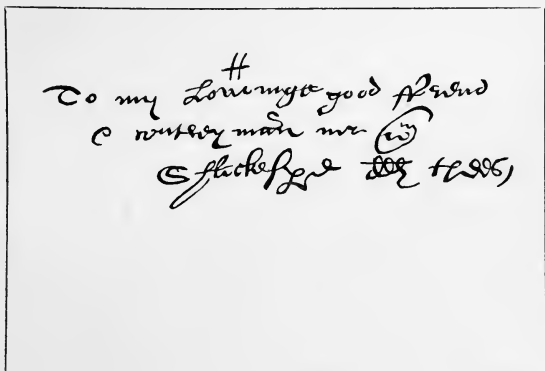 To my Loveinge good ffrend
& contreymann mr wm
Shackespe dlr thees